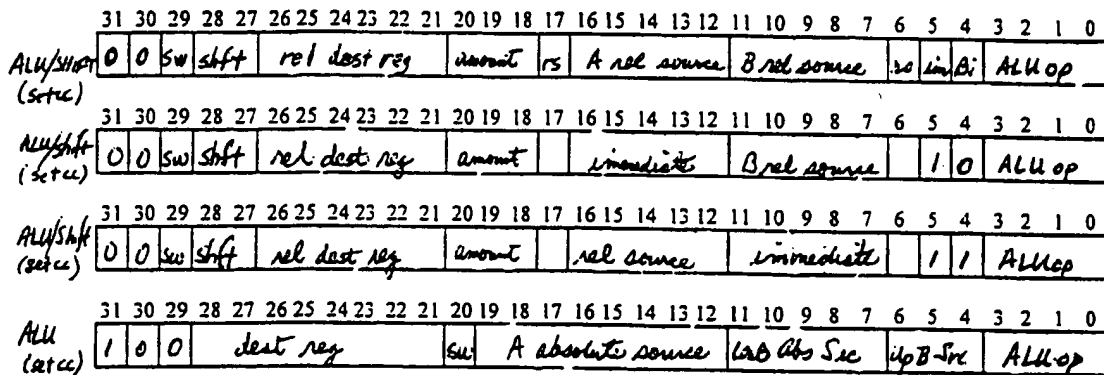 31 30 29 28 27 26 25 24 23 22 21 20 19 18 17 16 15 14 13 12 11 10 9 8 7 6 5 4 3 2 1 0
ALU/Shift 0 0 sw shft rel dest reg amount rs A rel source B rel source im Bi ALU op
(setcc)
31 30 29 28 27 26 25 24 23 22 21 20 19 18 17 16 15 14 13 12 11 10 9 8 7 6 5 4 3 2 1 0
ALU/shft 0 0 sw shft rel dest reg amount immediate B rel source 1 0 ALU op
(setcc)
31 30 29 28 27 26 25 24 23 22 21 20 19 18 17 16 15 14 13 12 11 10 9 8 7 6 5 4 3 2 1 0
ALU/Shft 0 0 sw shft rel dest reg amount rel source immediate 1 1 ALU op
(setcc)
31 30 29 28 27 26 25 24 23 22 21 20 19 18 17 16 15 14 13 12 11 10 9 8 7 6 5 4 3 2 1 0
ALU 1 0 0 dest reg sw A absolute source B Abs Src B Src ALU op
(setcc)